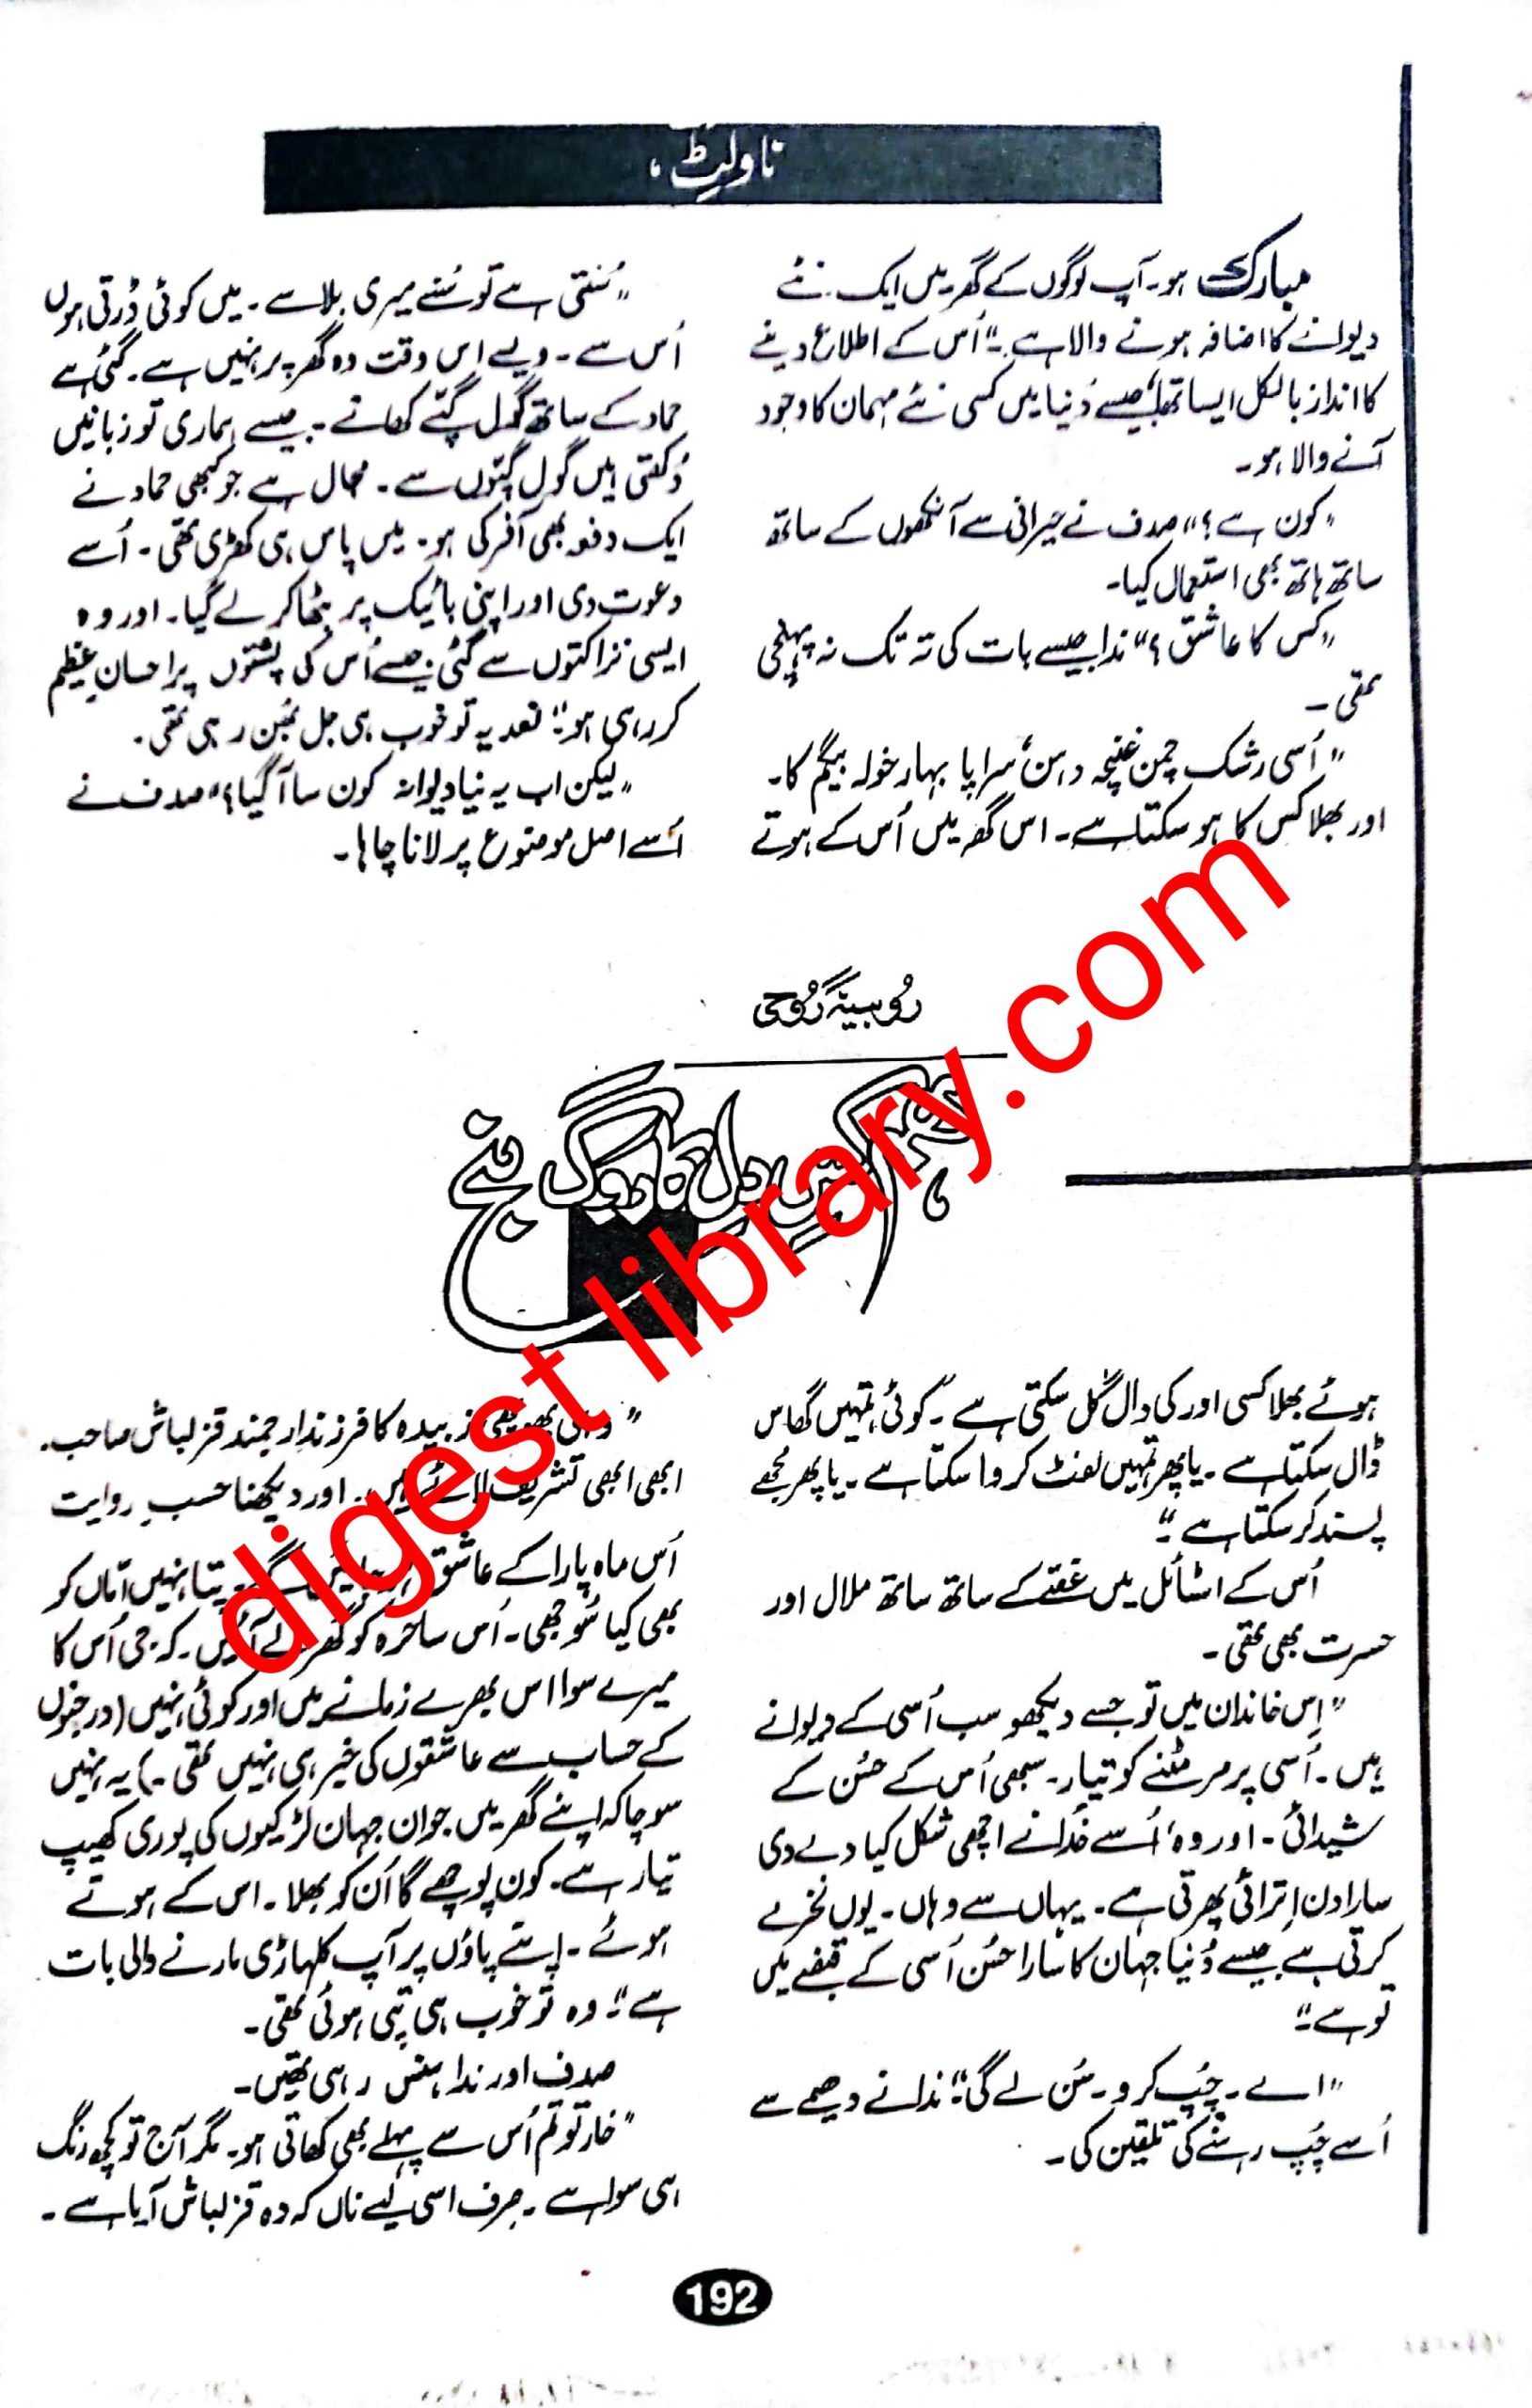 ناولٹ،
مبارک ہو۔ آپ لوگوں کے گھر میں ایک نئے
دیوانے کا اضافہ ہونے والا ہے۔" اُس کے اطلاع دینے
کا انداز بالکل ایسا تھا، جیسے دُنیا میں کسی نئے مہمان کا وجود
آنے والا ہو۔
"کون ہے؟" صدف نے حیرانی سے آنکھوں کے ساتھ
ساتھ ہاتھ بھی استعمال کیا۔
"کس کا عاشق؟" ندا جیسے بات کی تہ تک نہ پہنچی
تھی۔
"اُسی رشک چمن غنچہ دہن، سراپا بہار خولہ بیگم کا۔
اور بھلا کس کا ہو سکتا ہے۔ اس گھر میں اُس کے ہوتے
"سُنتی ہے تو سُنے میری بلا سے۔ میں کوئی ڈرتی ہوں
اُس سے۔ ویسے اس وقت وہ گھر پر نہیں ہے۔ گئی ہے
حماد کے ساتھ گول گپے کھانے۔ جیسے ہماری تو زبانیں
دُکھتی ہیں گول گپوں سے۔ مجال ہے جو کبھی حماد نے
ایک دفعہ بھی آفر کی ہو۔ میں پاس ہی کھڑی تھی۔ اُسے
دعوت دی اور اپنی بائیک پر بٹھا کر لے گیا۔ اور وہ
ایسی نزاکتوں سے گئی جیسے اُس کی پشتوں پر احسانِ عظیم
کر رہی ہو۔" نعدیہ تو خوب ہی جل بھُن رہی تھی۔
"لیکن اب یہ نیا دیوانہ کون سا آ گیا؟" صدف نے
اُسے اصل موضوع پر لانا چاہا۔
روبینہ گروحی
ہم کریں دل کا روگ بنے
ہوئے بھلا کسی اور کی دال گل سکتی ہے۔ کوئی تمہیں گھاس
ڈال سکتا ہے۔ یا پھر تمہیں لفٹ کروا سکتا ہے۔ یا پھر مُجھے
پسند کر سکتا ہے۔"
اُس کے اسٹائل میں غصّے کے ساتھ ساتھ ملال اور
حسرت بھی تھی۔
"اِس خاندان میں تو جسے دیکھو سب اُسی کے دیوانے
ہیں۔ اُسی پر مر مٹنے کو تیار۔ سبھی اُس کے حُسن کے
شیدائی۔ اور وہ، اُسے خُدا نے اچھی شکل کیا دے دی
سارا دن اِتراتی پھرتی ہے۔ یہاں سے وہاں۔ یوں نخرے
کرتی ہے جیسے دُنیا جہان کا سارا حُسن اُسی کے قبضے میں
تو ہے۔"
"اے۔ چُپ کرو۔ سُن لے گی۔" ندا نے دھیمے سے
اُسے چُپ رہنے کی تلقین کی۔
"وہی پھوپھی زبیدہ کا فرزندِ ارجمند قزلباش صاحب۔
ابھی ابھی تشریف لائے ہیں۔ اور دیکھنا حسبِ روایت
اُس ماہ پارا کے عاشق ہو جائیں گے۔ پتا نہیں امّاں کو
بھی کیا سُوجھی۔ اُس ساحرہ کو گھر لے آئیں۔ کہ جی اُس کا
میرے سوا اس بھرے زمانے میں اور کوئی نہیں (درجنوں
کے حساب سے عاشقوں کی خبر ہی نہیں تھی۔) یہ نہیں
سوچا کہ اپنے گھر میں جوان جہان لڑکیوں کی پوری کھیپ
تیار ہے۔ کون پوچھے گا اُن کو بھلا۔ اس کے ہوتے
ہوئے۔ اپنے پاؤں پر آپ کلہاڑی مارنے والی بات
ہے۔" وہ تو خوب ہی تپی ہوئی تھی۔
صدف اور ندا ہنس رہی تھیں۔
"خار تو تم اُس سے پہلے بھی کھاتی ہو۔ مگر آج تو کچھ رنگ
ہی سوا ہے۔ صرف اسی لیے ناں کہ وہ قزلباش آیا ہے۔
192
digest library.com